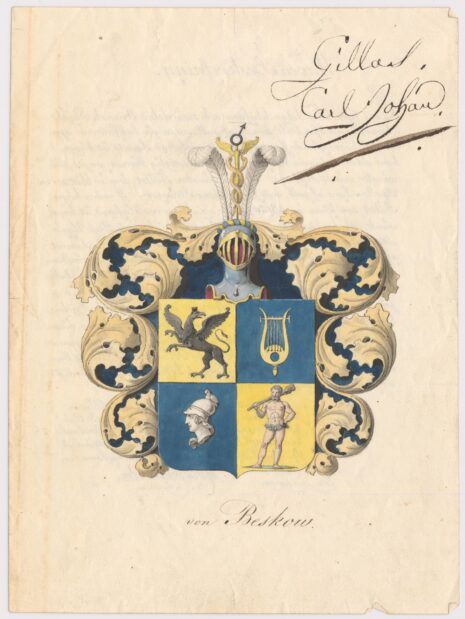 Gillas.
Carl Johan
von Beskow.